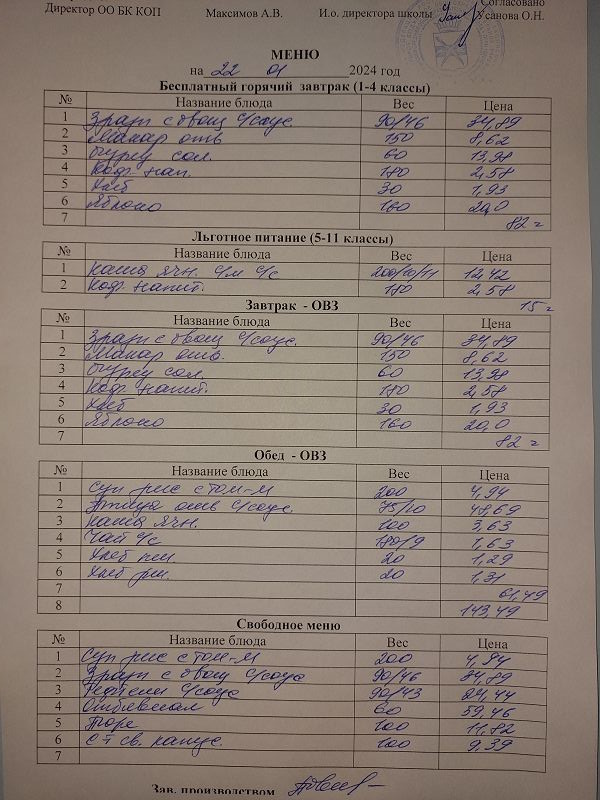 Согласовано
Директор ОО БК КОП Максимов А.В. И.о. директора школы Усанова О.Н.
МЕНЮ
на 22 01 2024 год
Бесплатный горячий завтрак (1-4 классы)
№ Название блюда Вес Цена
1 Зразы с овощ с/соус. 90/46 34,89
2 Макар отв 150 8,62
3 Огурец сол. 60 13,98
4 Коф. нап. 180 2,58
5 Хлеб 30 1,93
6 Яблоко 160 20,0
7 82 =
Льготное питание (5-11 классы)
№ Название блюда Вес Цена
1 Каша ячн. с/м с/с 200/10/11 12,42
2 Коф напит. 180 2,58
15 =
Завтрак - ОВЗ
№ Название блюда Вес Цена
1 Зразы с овощ с/соус. 90/46 34,89
2 Макар отв. 150 8,62
3 Огурец сол. 60 13,98
4 Коф. напит. 180 2,58
5 Хлеб 30 1,93
6 Яблоко 160 20,0
7 82 =
Обед - ОВЗ
№ Название блюда Вес Цена
1 Суп рис с том-м 200 4,94
2 Птица отв с/соус. 75/10 48,69
3 Каша ячн. 100 3,63
4 Чай с/с 180/9 1,63
5 Хлеб пш. 20 1,29
6 Хлеб рж. 20 1,31
7 61,49
8 143,49
Свободное меню
№ Название блюда Вес Цена
1 Суп рис с том-м 200 4,94
2 Зразы с овощ с/соус 90/46 34,89
3 Тефтели с/соус 90/43 24,44
4 60 59,46
5 Пюре 100 11,82
6 св. капус. 100 9,39
7
Зав. производством